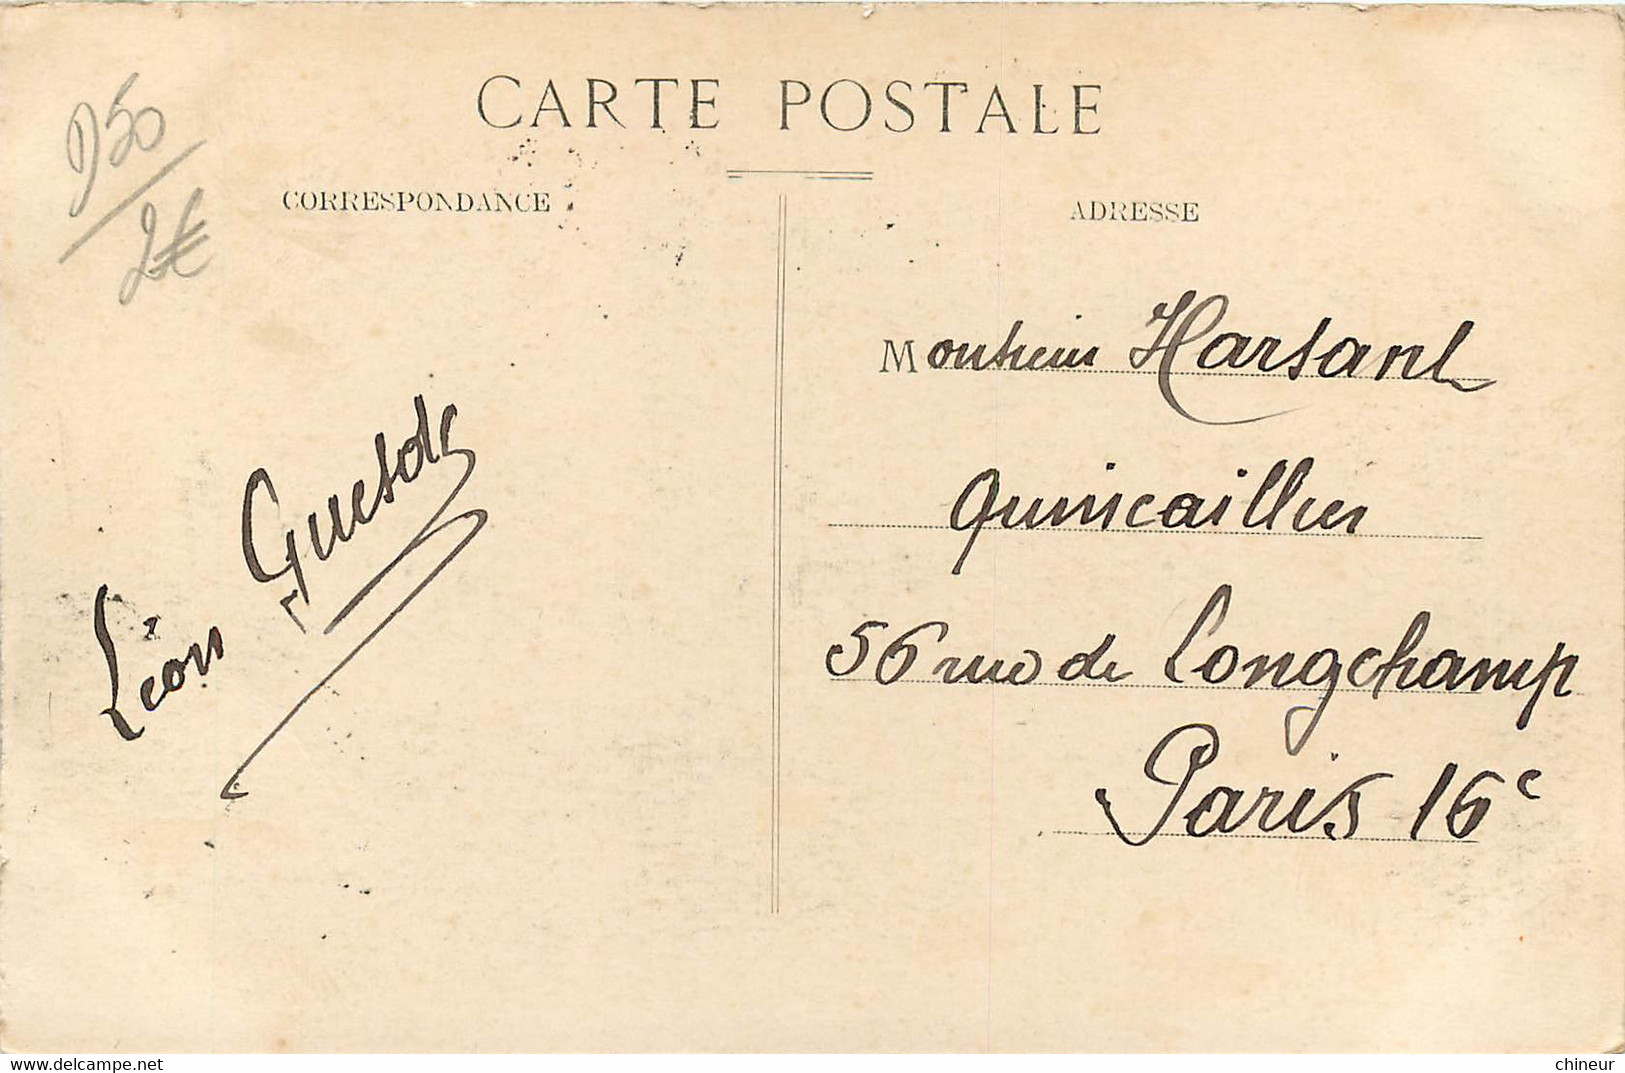 CARTE POSTALE
CORRESPONDANCE
ADRESSE
950
2€
Monsieur Harsant
Quincaillier
56 rue de Longchamp
Paris 16e
Léon Guesde
www.delcampe.net
chineur